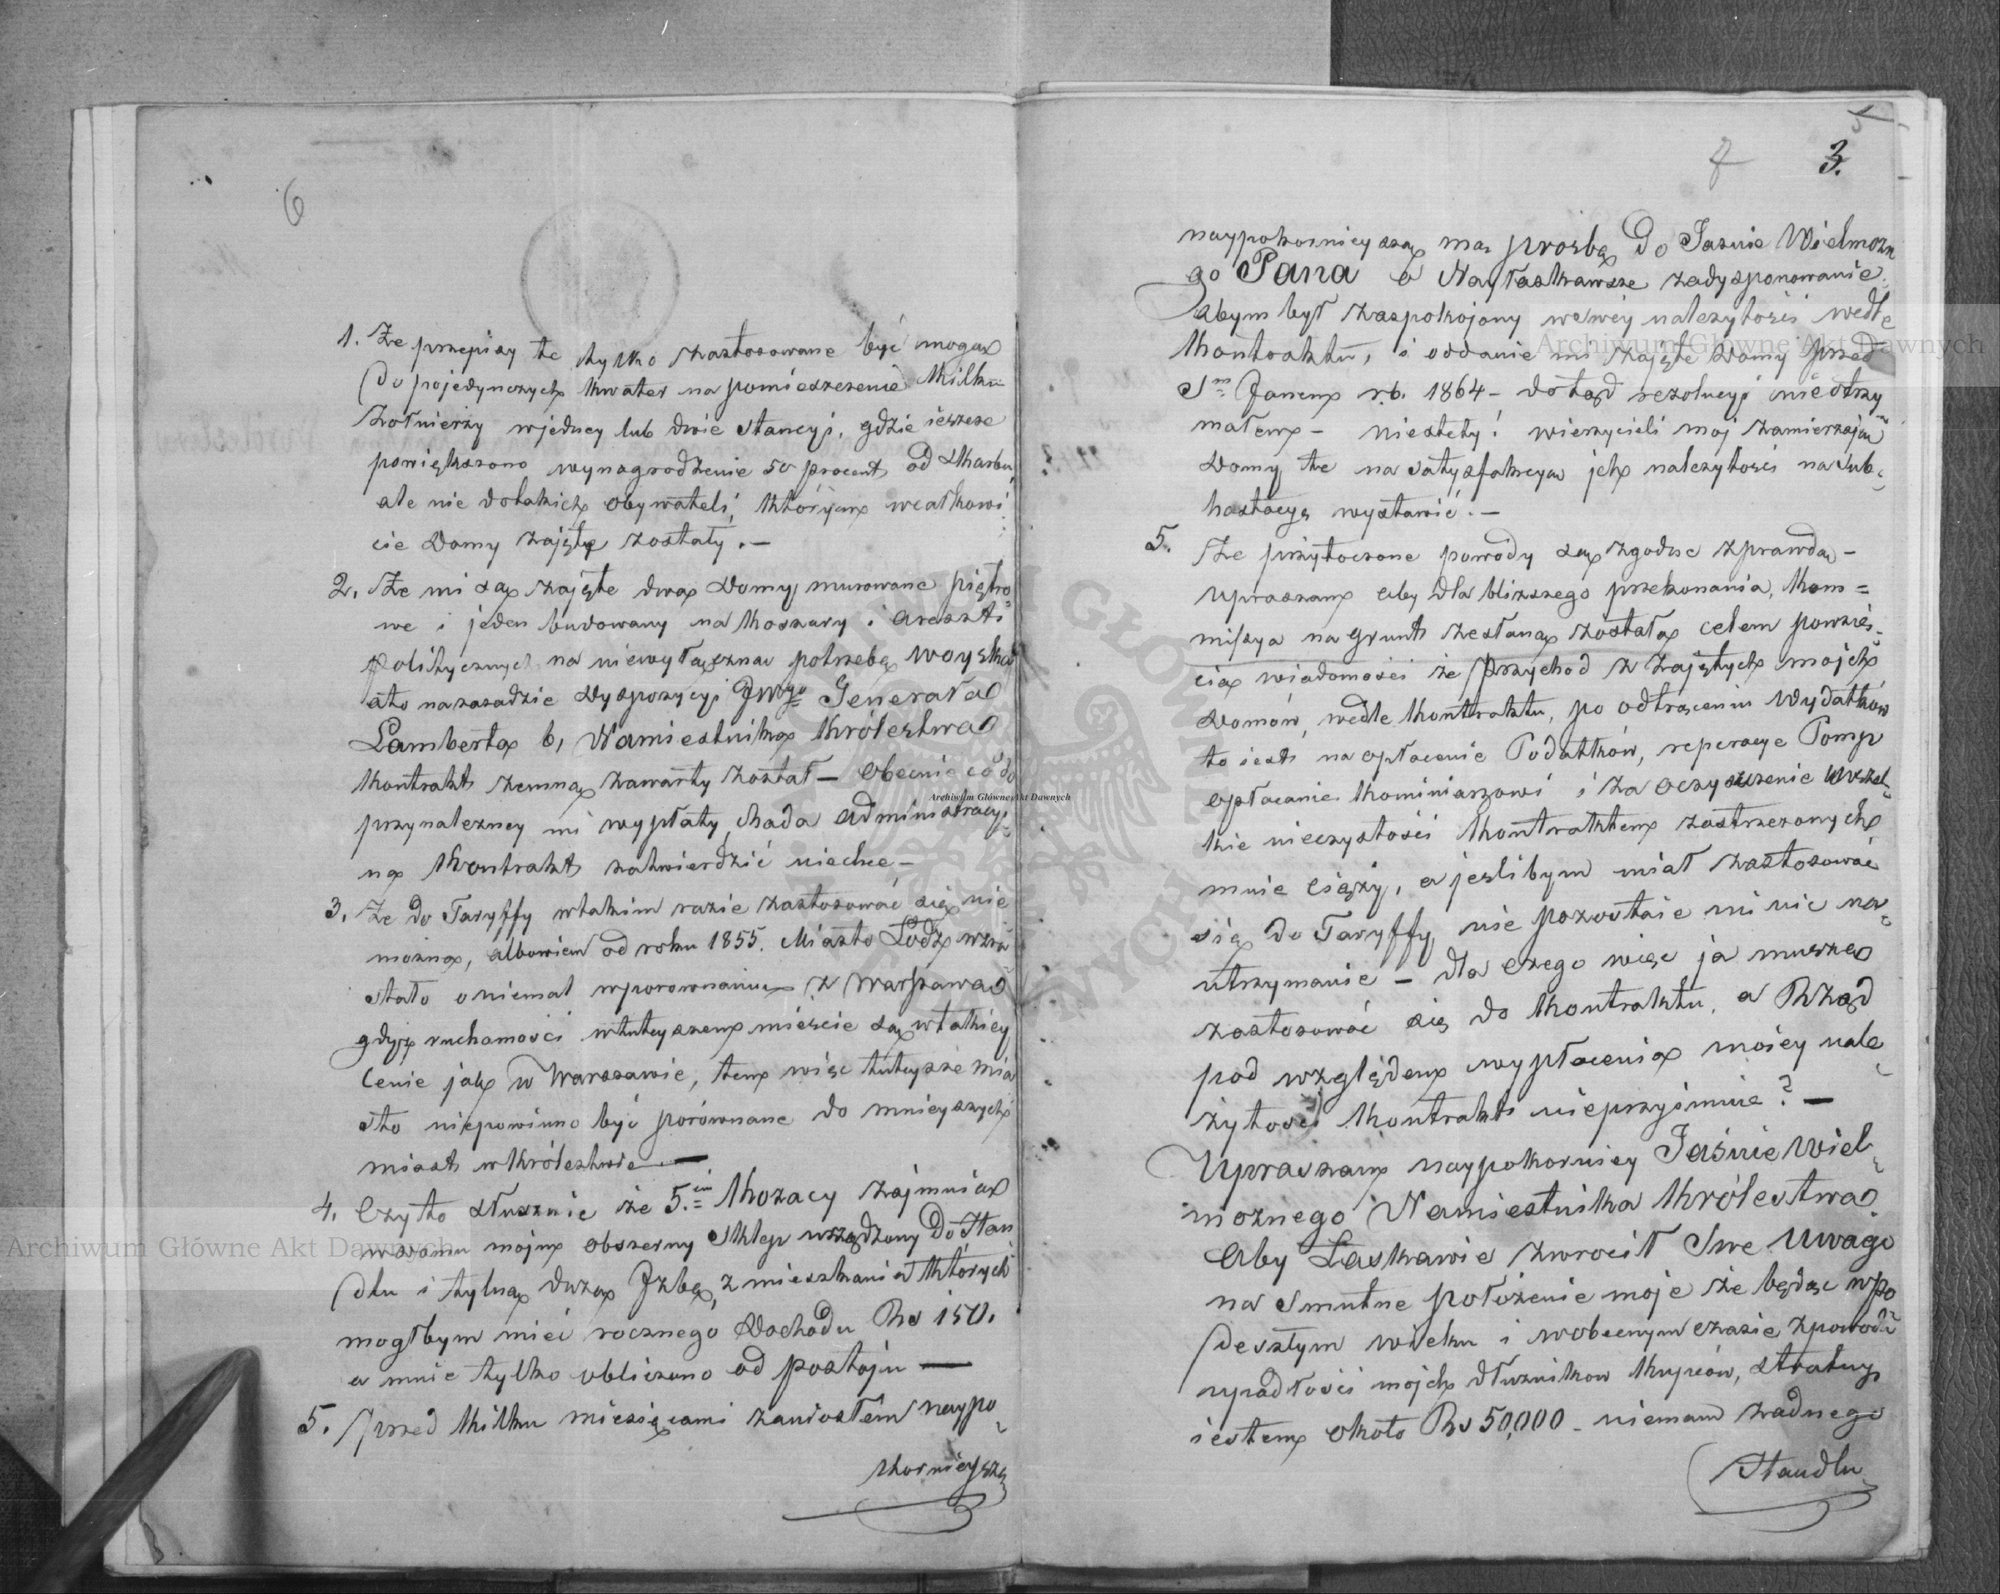 6
1. Że przepisy te tylko zastosowane być mogą
do pojedynczych kwater na pomieszczenie kilku
żołnierzy wjedney lub dwie stancyi, gdzie ieszcze
powiększono wynagrodzenie 50 procent od Skarbu,
ale nie dotakich obywateli, którym wcałkowi
cie Domy zajęte zostały. —
2. Że mi są zajęte dwa Domy murowane piętro=
we i jeden budowany na koszary i areszt
politycznych na niewyłączną potrzebę woyska
ato nazasadzie Dyspozycyi JWgo Generała
Lamberta b, Namiestnika Królestwa
Kontrakt zemną zawarty został — obecnie co do
przynależney mi wypłaty, Rada administracyi=
na Kontrakt zatwierdzić niechce —
3. Że do Taryffy wtakim razie zastosować się nie
można, albowiem od roku 1855. Miasto Łódź wzra
stało oniemal wporownaniu z Warszawą
gdyż ruchomości wtuteyszem mieście są wtakiey
Cenie jak w Warszawie, tem więc tuteysze mia
sto niepowinno być porównane do mnieyszych
miast wKrólestwie —
4. Czyto słusznie że 5.ciu Kozacy zajmują
wdomu moim obszerny Sklep urządzony Do Han
dlu i tylną dużą Jzbę, z mieszkania których
mogłbym mieć rocznego Dochodu Rs 150.
a mnie tylko obliczono od postoju —
5. Przed kilku miesięcami zaniosłem naypo=
korniejszą
7 3.
naypokornieyszą mą prozbę Do Jasnie Wielmożn
go Pana o Nayłaskawsze zadysponowanie
abym był zaspokojony wswéy należytości wedle
Kontraktu, i oddanie mi zajęte Domy przed
Sm Janem r.b. 1864 — dotąd rezolucyi nieotrzy=
małem — niestety! wierzycieli moj zamierzają
Domy te na satysfakcyą jch należytości na Sub=
hastacyę wystawić. —
5. Że przytoczone powody są zgodne zprawdą —
upraszam aby dla bliższego przekonania, Kom=
missya na grunt zesłaną została celem powzię=
cia wiadomości że przychod z zajętych moich
Domów, wedle Kontraktu, po odtrąceniu Wydatków
to jest na opłacenie Podatków, reperacye Pomp
opłacanie Kominiarzowi i za oczyszczenie wszel=
kie nieczystości Kontraktem zastrzeżonych
mnie ciąży, a jeślibym miał zastosować
się do Taryffy nie pozostaie mi nic na=
utrzymanie — dla czego więc ja muszę
zastosować się do Kontraktu, a Rząd
pod względem wypłacenia mojey nale=
żytości Kontrakt nieprzyjmuie? —
Upraszam naypokorniey Jaśnie Wiel=
możnego Namiestnika Królestwa
aby Łaskawie zwrocił Swe Uwagi
na Smutne położenie moje że będąc wpo
deszłym wieku i wobecnym czasie zpowodu
upadłości mojch dłużnikow Kupców, stratny
iestem około Rs 50,000 — niemam żadnego
Handlu
Archiwum Główne Akt Dawnych
Archiwum Główne Akt Dawnych
Archiwum Główne Akt Dawnych